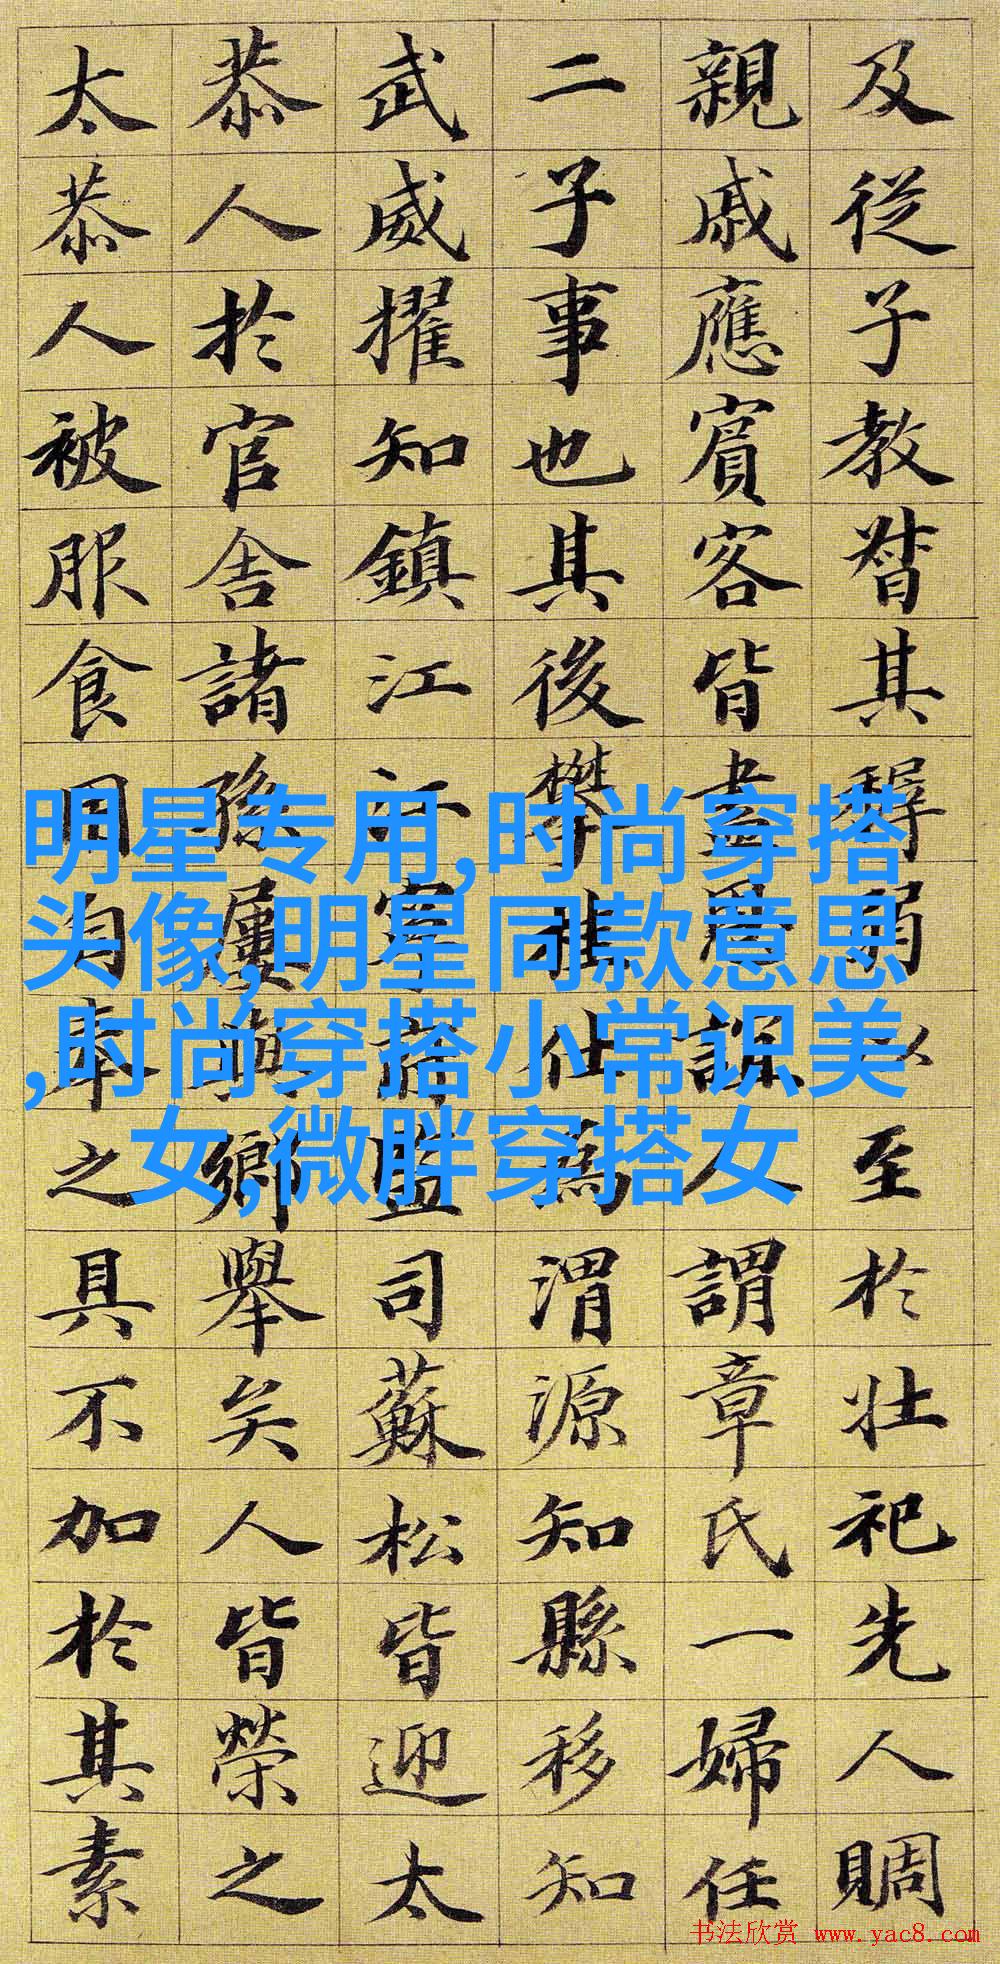 及從子教督其穉弱以至於壯祀先人賙
親戚應賓客皆盡人謂章氏一婦任
二子事也其後攀桂仕為渭源知縣移知
武威擢知鎮江江寧監司蘇松皆迎太
恭人於官舍諸孫屢鄉舉矣人皆榮之
太恭人被服食用自奉之具不加於其素
明星专用,时尚穿搭
头像,明星同款意思
,时尚穿搭小常识美
女,微胖穿搭女
书法欣赏 www.yac8.com